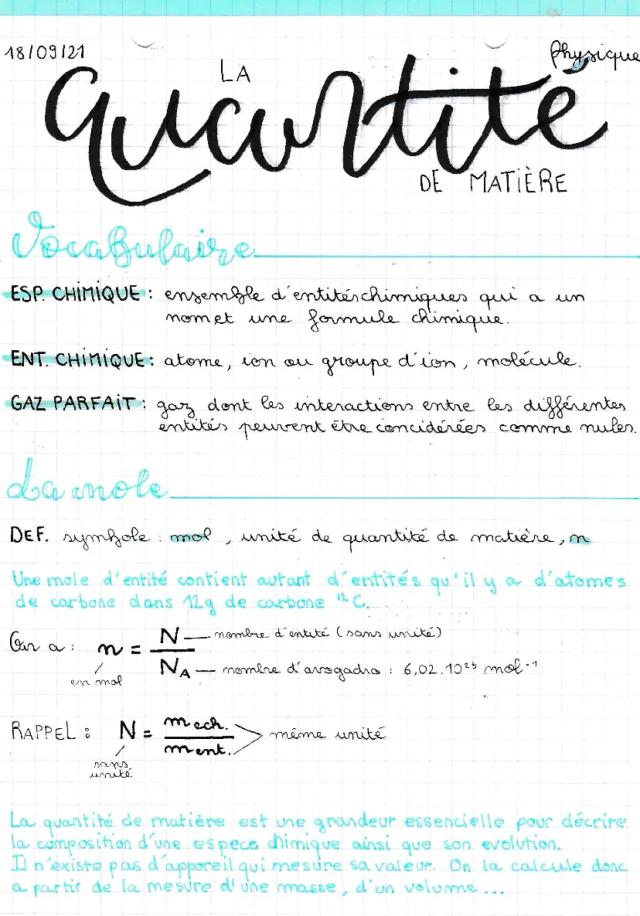 18/09/21
Physique
LA
quantité
DE MATIÈRE
Vocabulaire
ESP. CHIMIQUE : ensemble d'entités chimiques qui a un
nom et une formule chimique.
ENT. CHIMIQUE : atome, ion ou groupe d'ion, molécule.
GAZ PARFAIT : gaz dont les interactions entre les différentes
entités peuvent être concidérées comme nules.
La mole
DEF. symbole : mol , unité de quantité de matière, n
Une mole d'entité contient autant d'entités qu'il y a d'atomes
de carbone dans 12g de carbone ¹²C.
On a : n = N — nombre d'entité (sans unité)
en mol
N_A — nombre d'avogadro : 6,02.10²³ mol⁻¹
RAPPEL : N = m ech. / m ent. > même unité
sans
unité
La quantité de matière est une grandeur essencielle pour décrire
la composition d'une espece chimique ainsi que son evolution.
Il n'existe pas d'appareil qui mesure sa valeur. On la calcule donc
a partir de la mesure d'une masse, d'un volume...